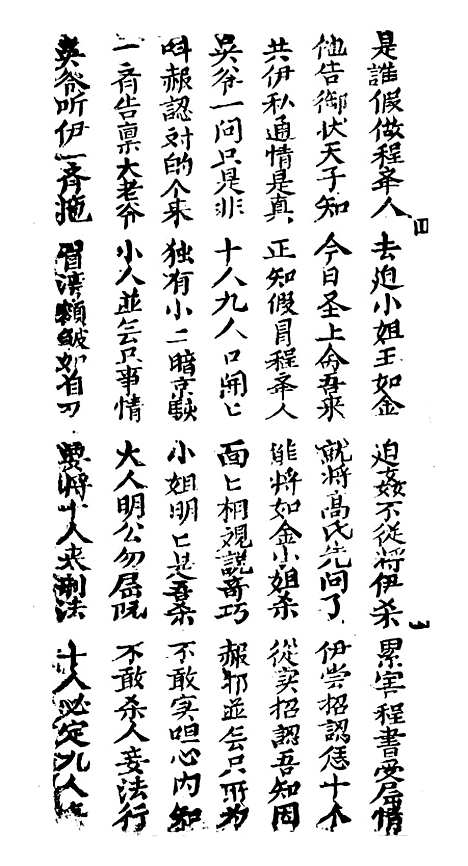 是誰假做程奉人 去迫小姐王如金 迫姦不從将伊杀 累害程書受屈情
他告御状天子知 今日圣上命吾来 就将高氏先问了 伊尝招認恁十个
共伊私通情是真 正知假冒程奉人 能将如金小姐杀 從实招認吾知因
吴爷一问只是非 十人九人口開匕 面匕相覌説奇巧 赧邪並仝只所为
呌赧認对的个来 独有小二暗京 小姐明匕是吾杀 不敢实呾心内知
一齐告禀大老爷 小人並仝只事情 大人明公勿屈阮 不敢杀人妾法行
吴爷听伊一齐拖 要将十人夹制法 十人必定九人